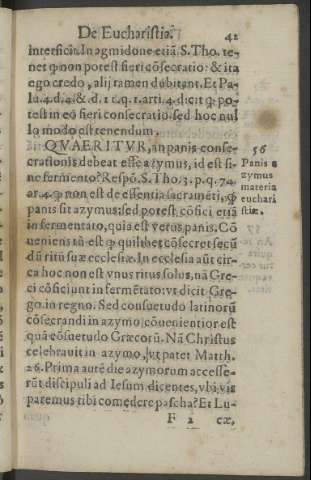 De Eucharistia. 42
interficit. In agmidone etiā. S. Tho. te-
net ꝙ non potest fieri cōsecratio: & ita
ego credo, alij tamen dubitant. Et Pa-
lu. 4. d. 4. & d. 11. q. 1. arti. 4. dicit ꝙ po-
test in eo fieri consecratio. sed hoc nul
lo modo est tenendum.
QVAERITVR, an panis conse-
crationis debeat esse azymus, id est si-
ne fermento? Respō. S. Tho. 3. p. q. 74.
ar. 4. ꝙ non est de essentia sacramēti, ꝙ
panis sit azymus: sed potest cōfici etiā
in fermentato, quia est verus panis. Cō
ueniens tā est ꝙ quilibet cōsecret secū
dū ritū suæ ecclesiæ. In ecclesia aūt cir-
ca hoc non est vnus ritus solus, nā Gre-
ci cōficiunt in fermētato: vt dicit Gre-
go. in regno. Sed consuetudo latinorū
cōsecrandi in azymo cōuenientior est
quā cōsuetudo Græcorū. Nā Christus
celebrauit in azymo, vt patet Matth.
26. Prima autē die azymorum accesse-
rūt discipuli ad Iesum dicentes, vbi vis
paremus tibi comedere pascha? Et Lu-
F 2 cæ,
56
Panis a
zymus
materia
euchari
stiæ.